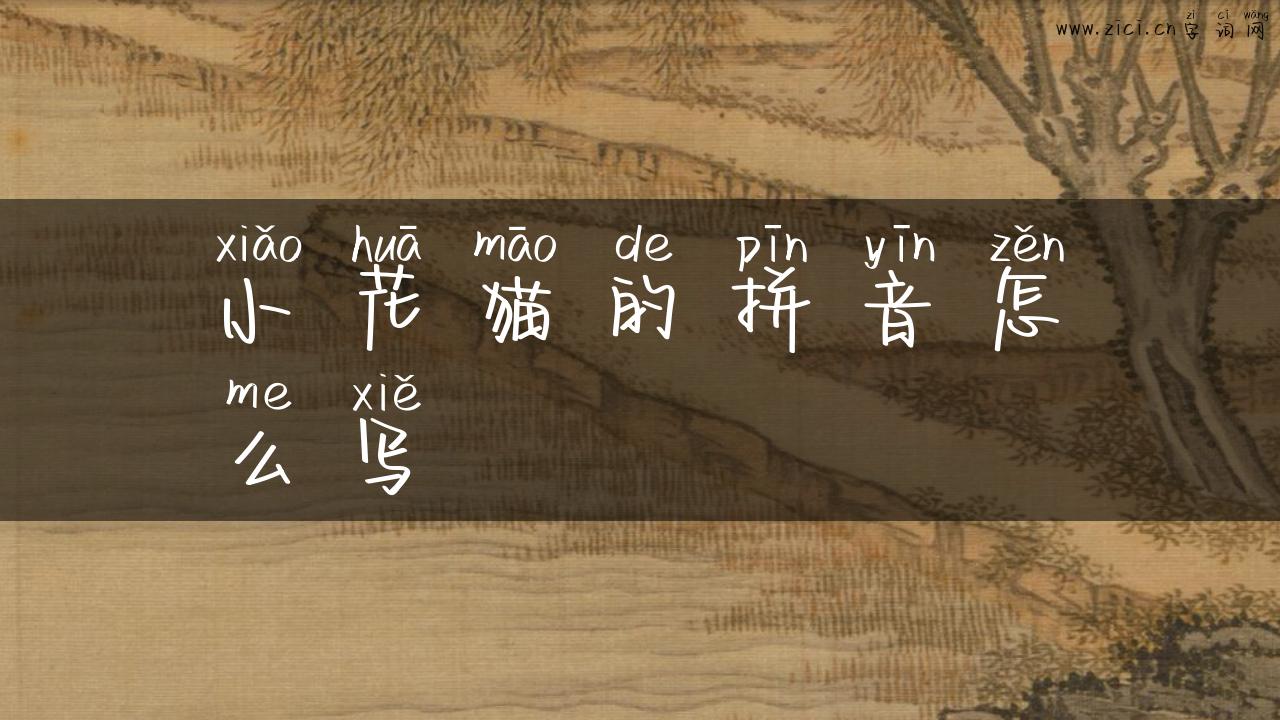 zì cí wǎng
www.zici.cn字词网
xiǎo huā māo de pīn yīn zěn
小花猫的拼音怎
me xiě
么写